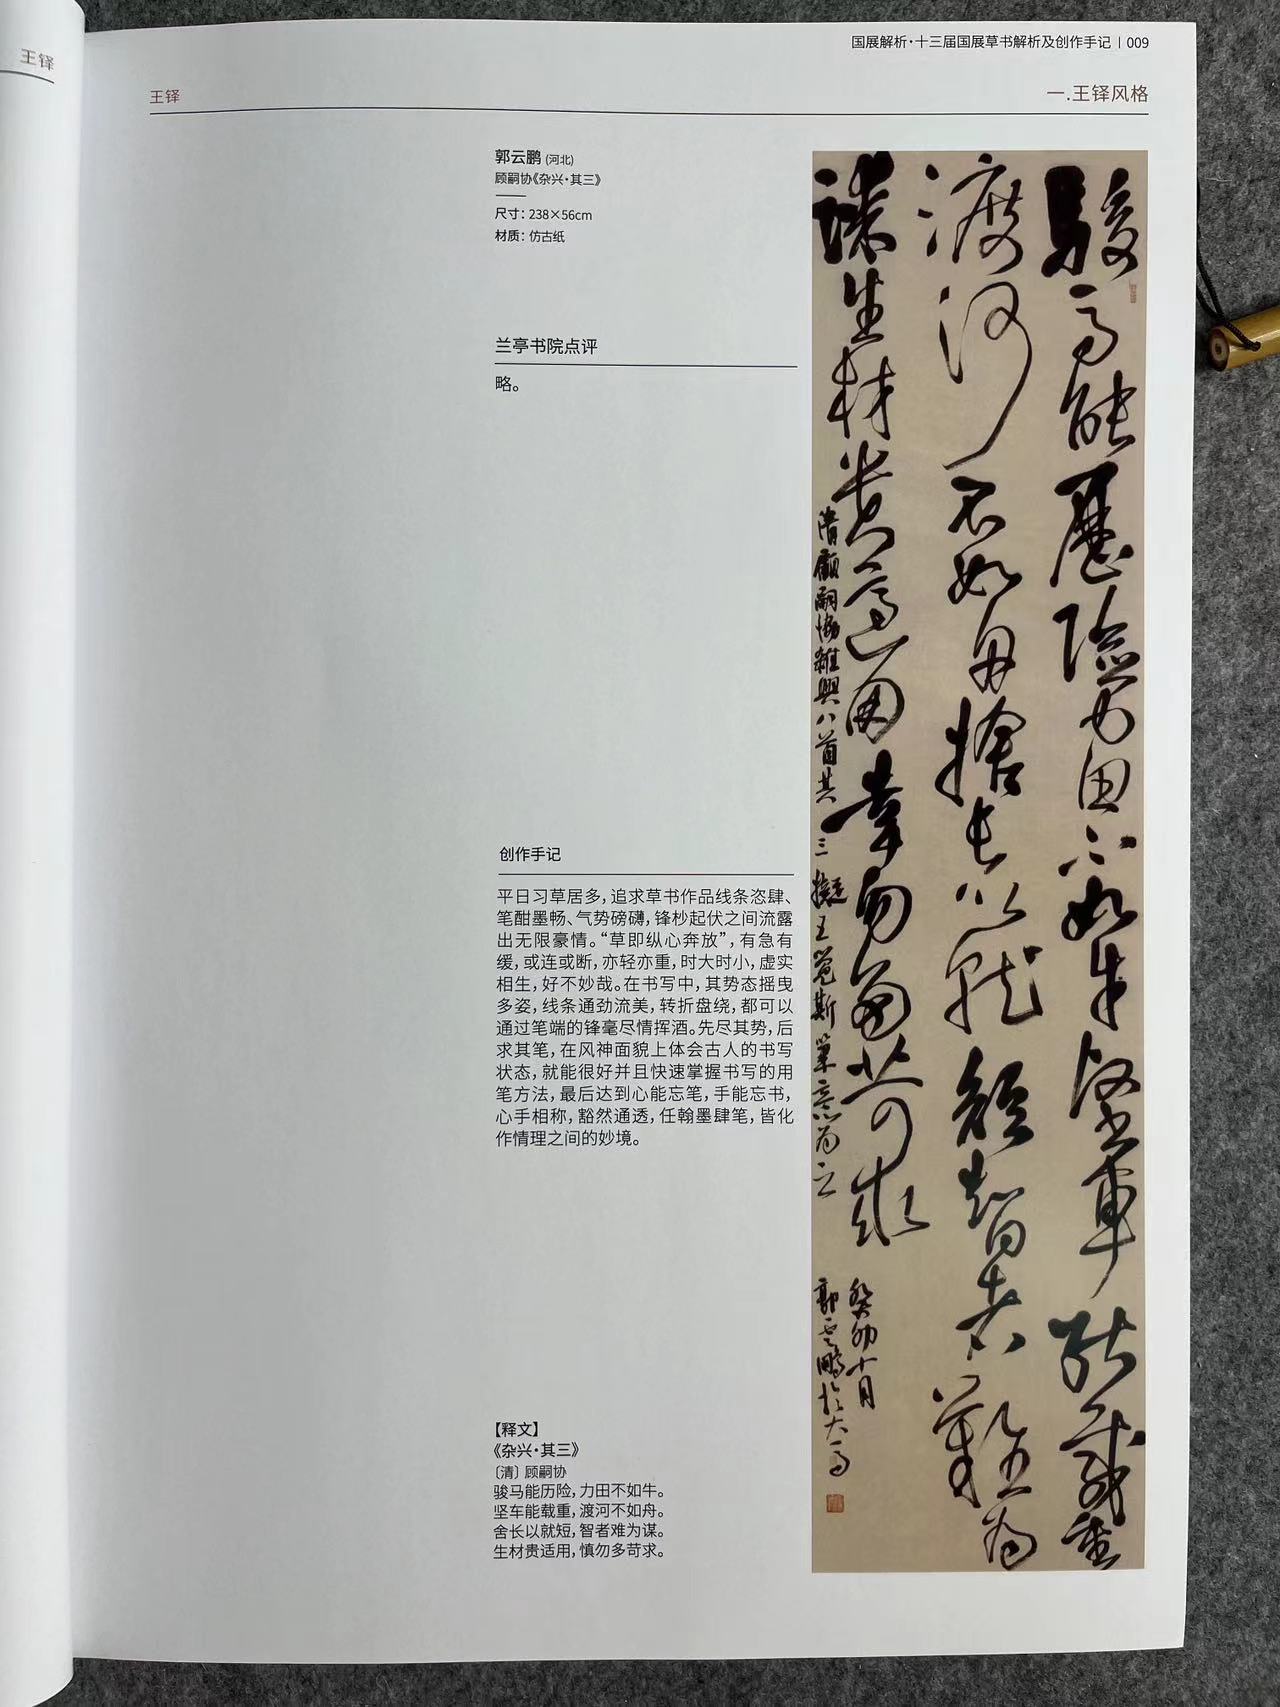 王铎
国展解析·十三届国展草书解析及创作手记 | 009
王铎
一.王铎风格
郭云鹏 (河北)
顾嗣协《杂兴·其三》
尺寸：238×56cm
材质：仿古纸
兰亭书院点评
略。
创作手记
平日习草居多，追求草书作品线条恣肆、
笔酣墨畅、气势磅礴，锋杪起伏之间流露
出无限豪情。“草即纵心奔放”，有急有
缓，或连或断，亦轻亦重，时大时小，虚实
相生，好不妙哉。在书写中，其势态摇曳
多姿，线条通劲流美，转折盘绕，都可以
通过笔端的锋毫尽情挥洒。先尽其势，后
求其笔，在风神面貌上体会古人的书写
状态，就能很好并且快速掌握书写的用
笔方法，最后达到心能忘笔，手能忘书，
心手相称，豁然通透，任翰墨肆笔，皆化
作情理之间的妙境。
【释文】
《杂兴·其三》
〔清〕顾嗣协
骏马能历险，力田不如牛。
坚车能载重，渡河不如舟。
舍长以就短，智者难为谋。
生材贵适用，慎勿多苛求。
駿馬能歷險力田不如牛堅車能載重
渡河不如舟捨長以就短智者難為
謀生材貴適用幸勿多苛求
清顧嗣協雜興八首其三擬王覺斯筆意為之
癸卯十月
郭雲鵬於大